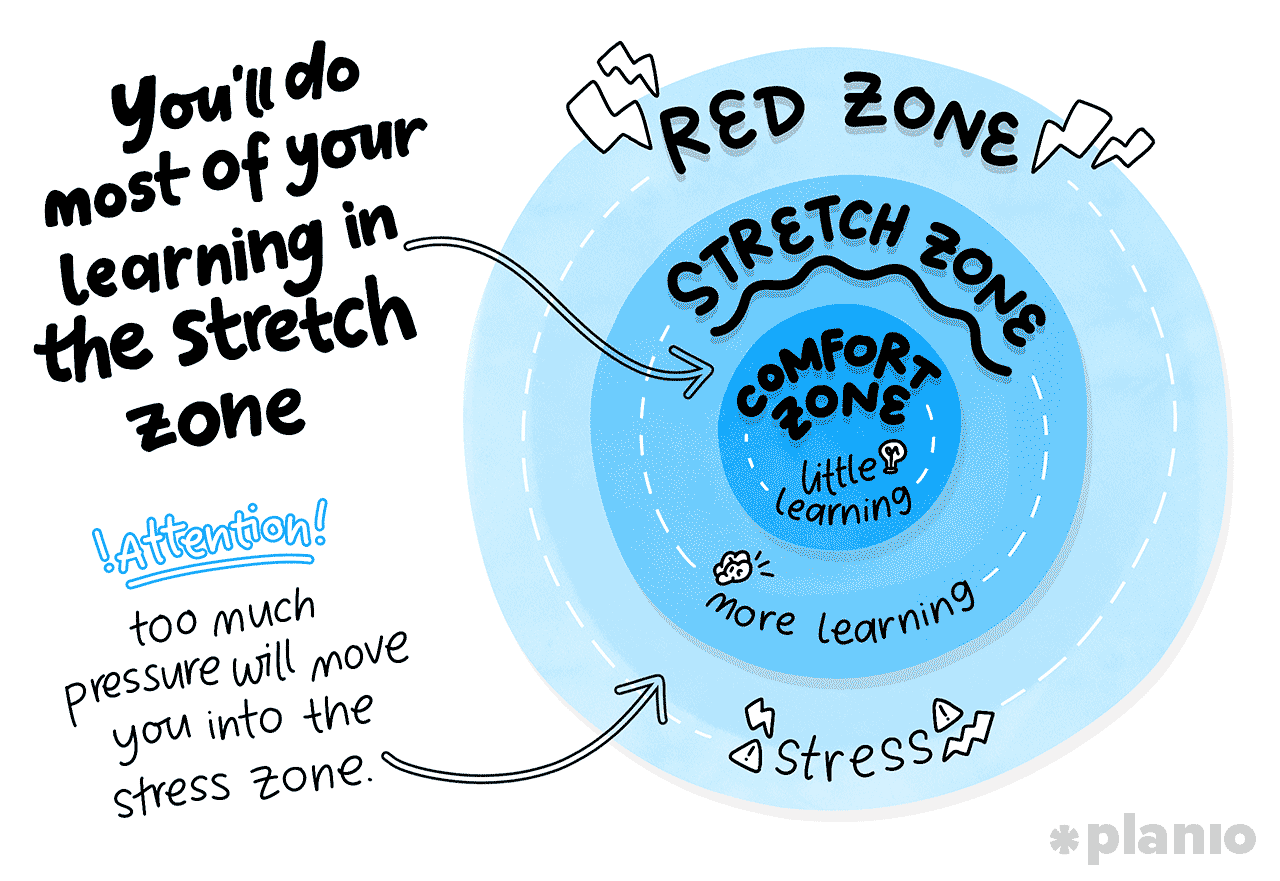 You'll do
most of your
learning in
the stretch
zone
!Attention!
too much
pressure will move
you into the
stress zone.
RED ZONE
STRETCH ZONE
COMFORT
ZONE
little
learning
more learning
stress
*planio